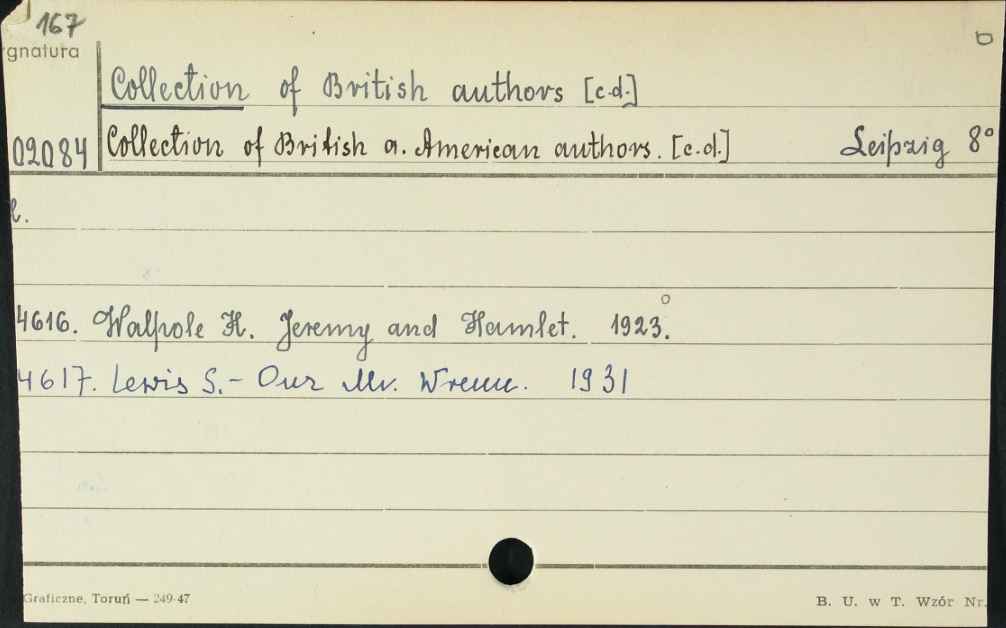 167
gnatura
Collection of British authors [c.d.]
02084 Collection of British a. American authors. [c.d.] Leipzig 8°
4616. Walpole H. Jeremy and Hamlet. 1923.
4617. Lewis S. - Our Mr. Wrenn. 1931
Graficzne, Toruń — 249-47
B. U. w T. Wzór Nr.